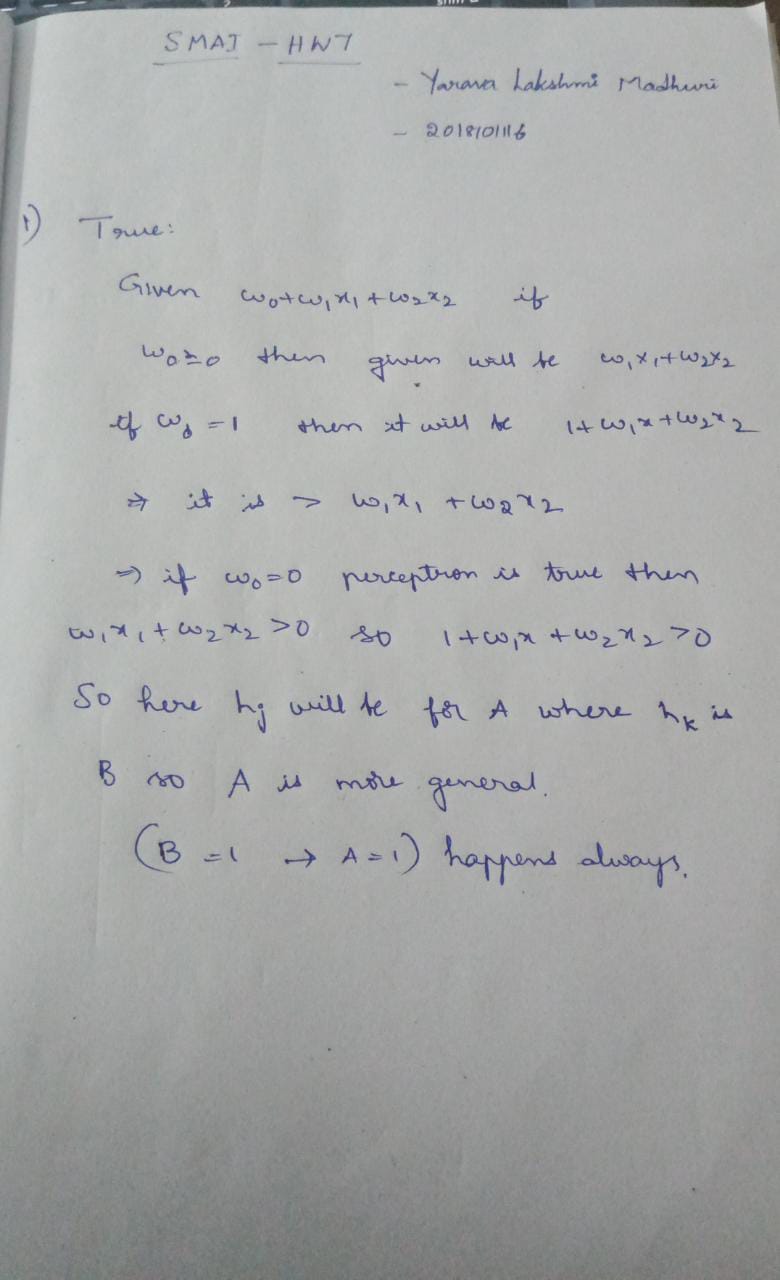 SMAI - HW7
- Yarava Lakshmi Madhuri
- 2018101116
1) True:
Given w₀+w₁x₁+w₂x₂ if
w₀=0 then given will be w₁x₁+w₂x₂
if w₀=1 then it will be 1+w₁x+w₂x₂
⇒ it is > w₁x₁ +w₂x₂
⇒ if w₀=0 perceptron is true then
w₁x₁+w₂x₂>0 so 1+w₁x+w₂x₂>0
So here hj will be for A where hk is
B so A is more general.
(B=1 → A=1) happens always.